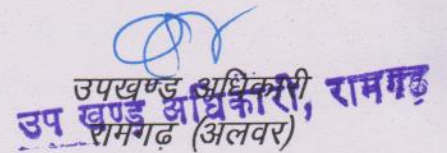 उपखण्ड अधिकारी
उप खण्ड अधिकारी, रामगढ
रामगढ़ (अलवर)